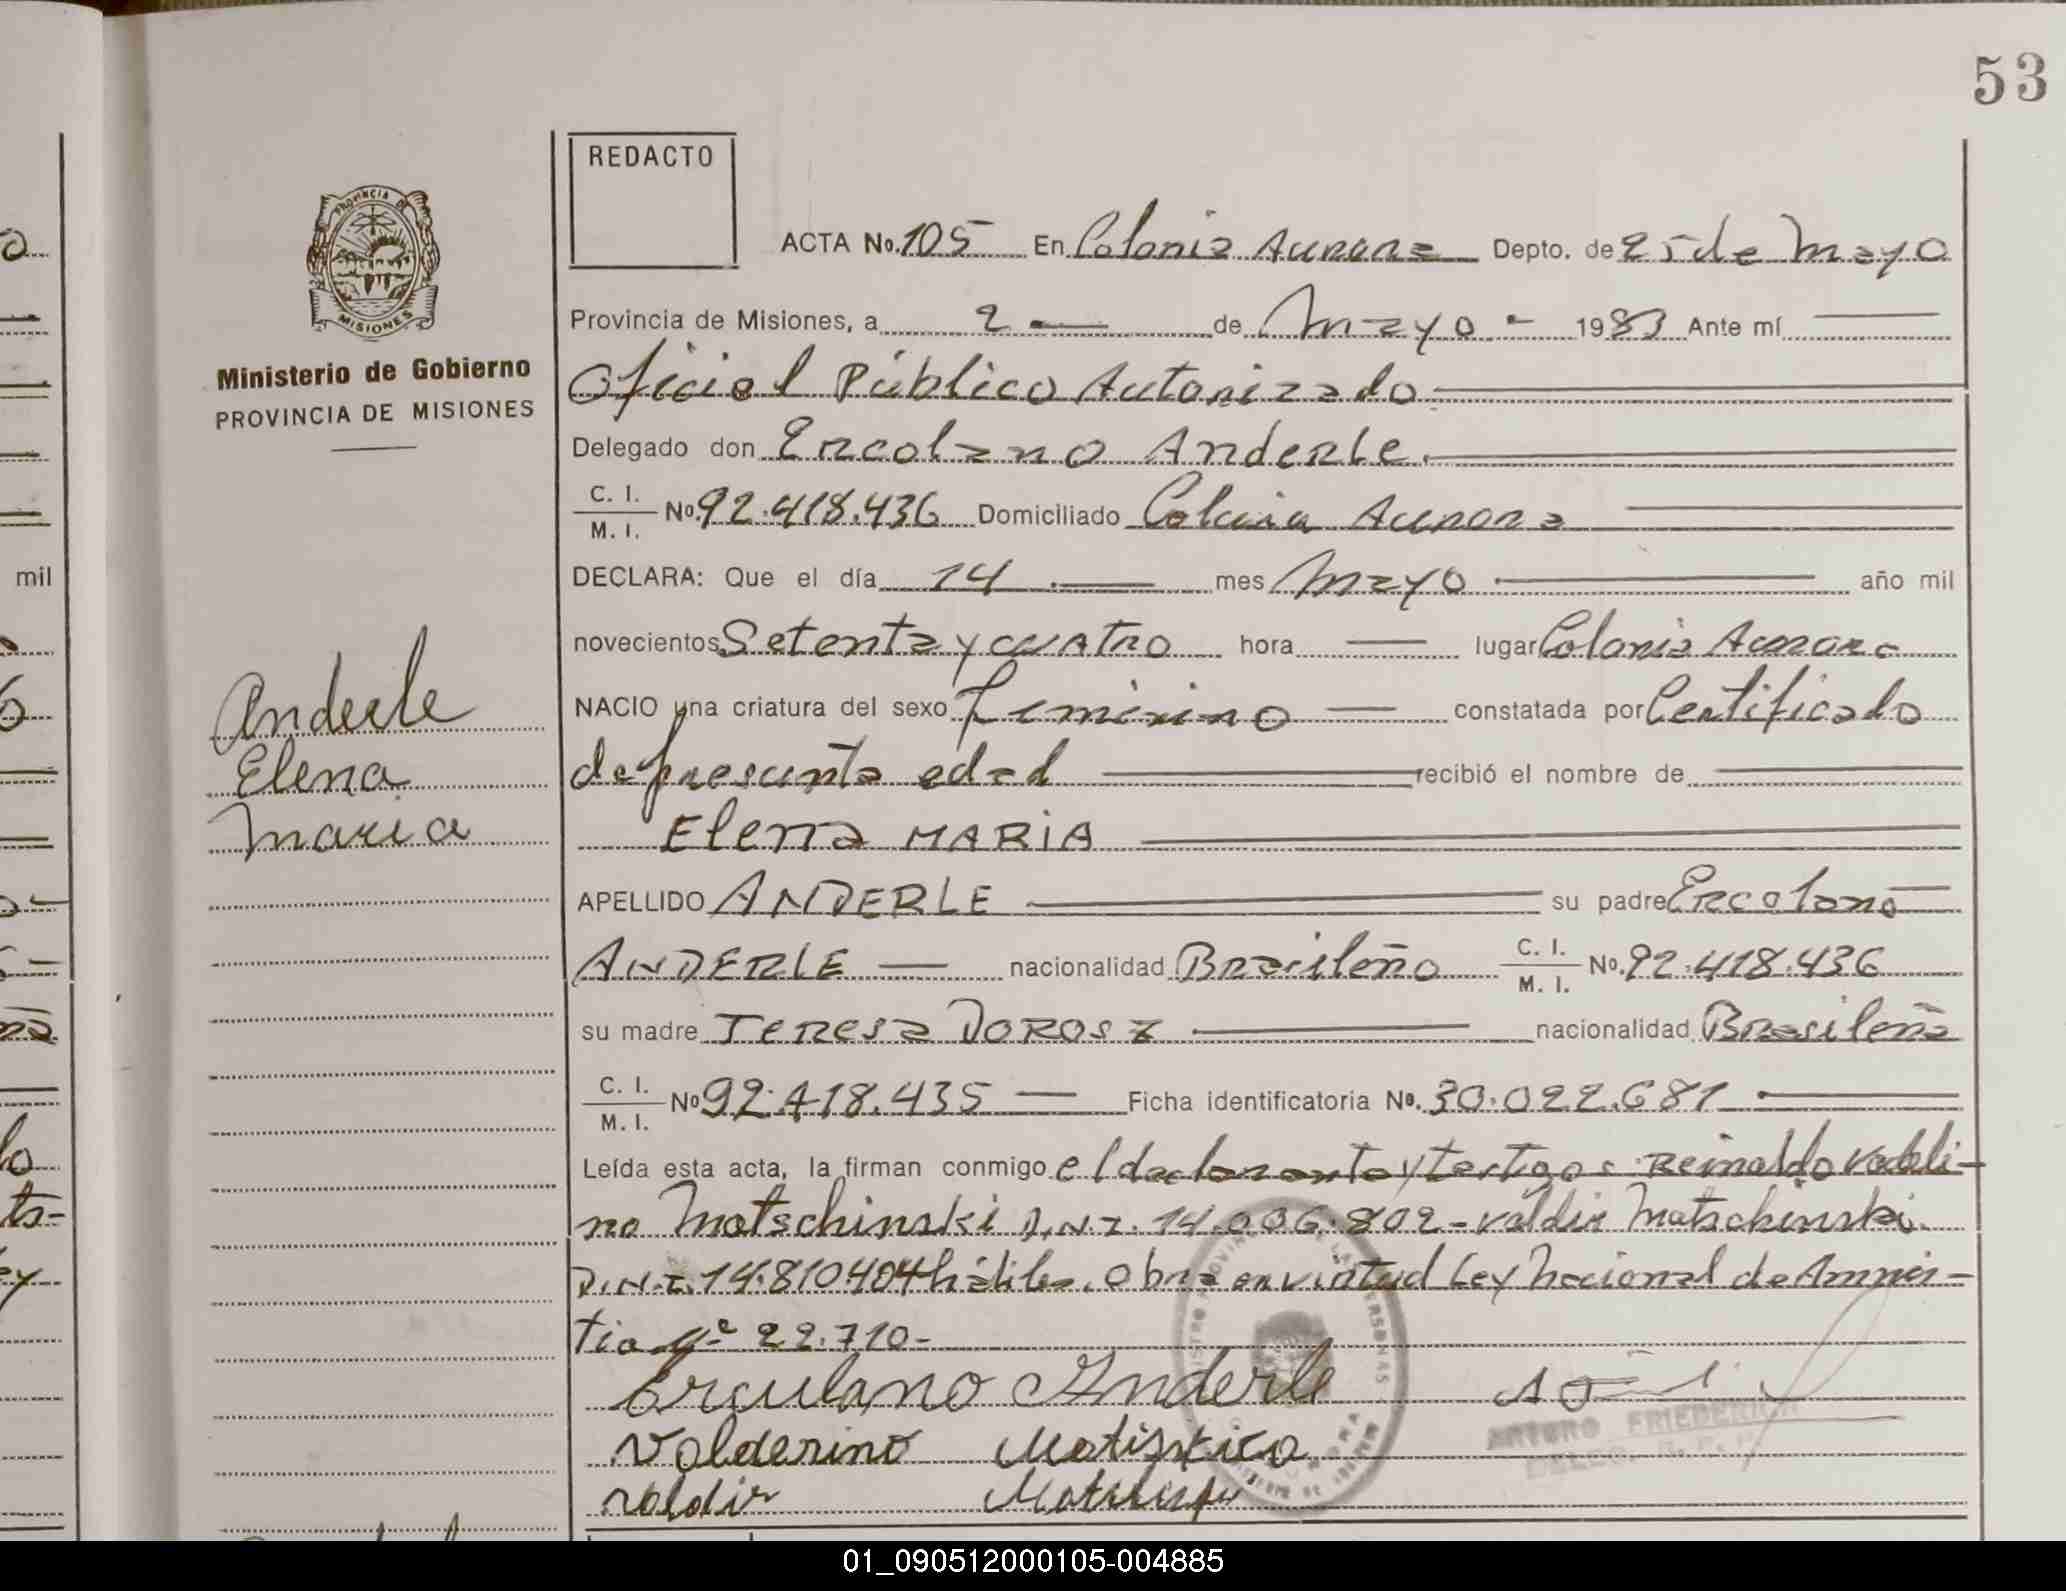 53
REDACTO
PROVINCIA DE
MISIONES
Ministerio de Gobierno
PROVINCIA DE MISIONES
Anderle
Elena
Maria
ACTA No. 105 En Colonia Aurora Depto. de 25 de Mayo
Provincia de Misiones, a 2 de Mayo 1983 Ante mí
Oficial Público Autorizado
Delegado don Ercolano Anderle.
C. I. M. I. No. 92.418.436 Domiciliado Colonia Aurora
DECLARA: Que el día 14 mes Mayo año mil
novecientos Setenta y cuatro hora lugar Colonia Aurora
NACIO una criatura del sexo Feminino constatada por Certificado
de presunta edad recibió el nombre de
Elena MARIA
APELLIDO ANDERLE su padre Ercolano
ANDERLE nacionalidad Brasileño C. I. M. I. No. 92.418.436
su madre Teresa Dorosz nacionalidad Brasileña
C. I. M. I. No 92.418.435 Ficha identificatoria No. 30.022.681
Leída esta acta, la firman conmigo el declarante y testigos: Reinaldo Valdi-
no Matschinski D.N.I. 14.006.802 - Valdir Matschinski
D.N.I. 14.810404 hábiles. Obra en virtud Ley Nacional de Amnis-
tia Nº 22.710-
Erculano Anderle
Valderino
Valdir
ARTURO FRIEDERICH
mil
01_090512000105-004885